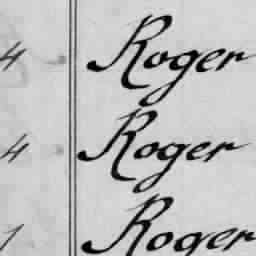 4 Roger
4 Roger
1 Roger